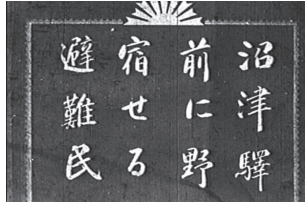 沼津驛
前に野
宿せる
避難民